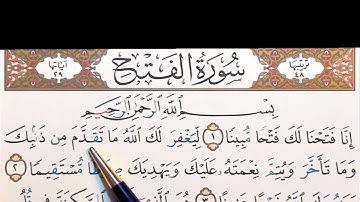 ترتيبها ٤٨ سُورَةُ الْفَتْحِ آياتها ٢٩
بِسْمِ اللَّهِ الرَّحْمَٰنِ الرَّحِيمِ
إِنَّا فَتَحْنَا لَكَ فَتْحًا مُّبِينًا ١ لِّيَغْفِرَ لَكَ اللَّهُ مَا تَقَدَّمَ مِن ذَنۢبِكَ
وَمَا تَأَخَّرَ وَيُتِمَّ نِعْمَتَهُ عَلَيْكَ وَيَهْدِيَكَ صِرَٰطًا مُّسْتَقِيمًا ٢